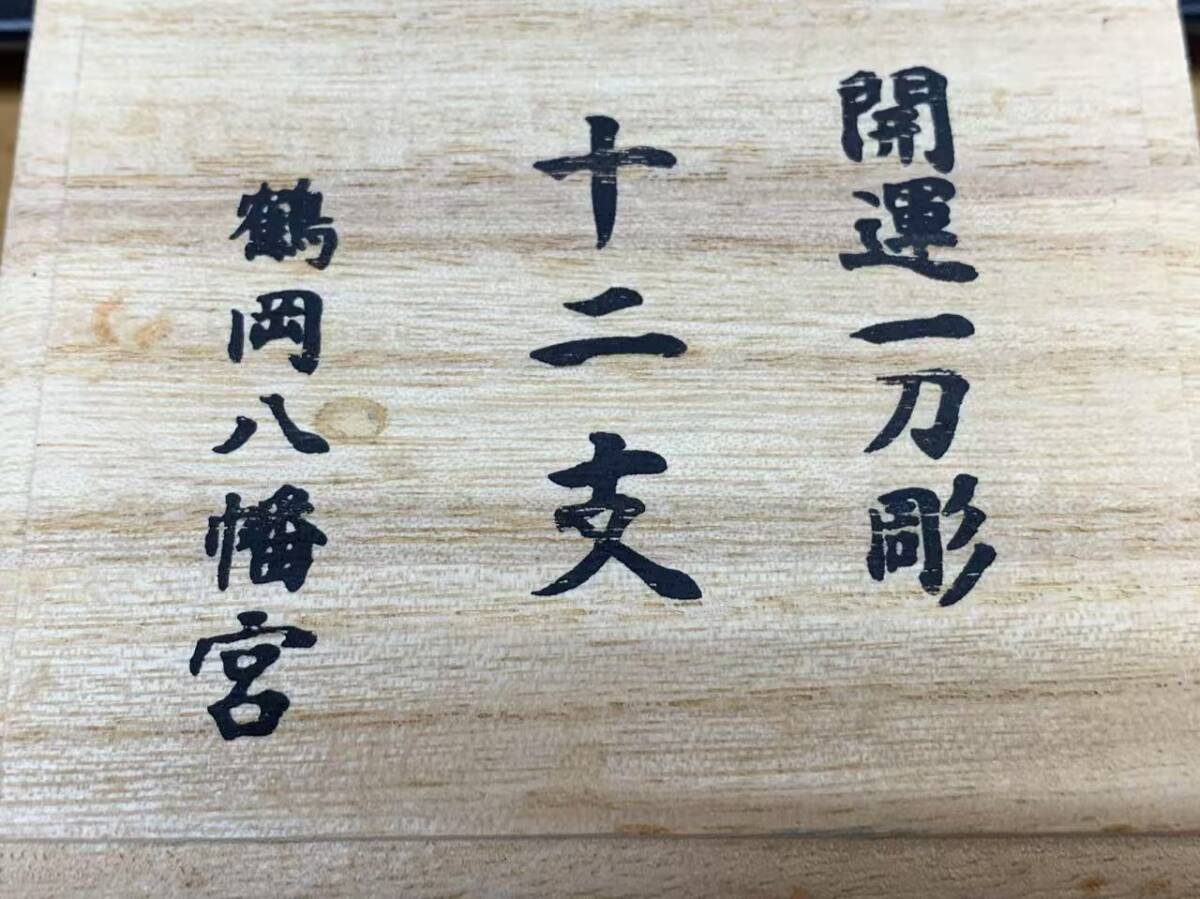 開運一刀彫
十二支
鶴岡八幡宮